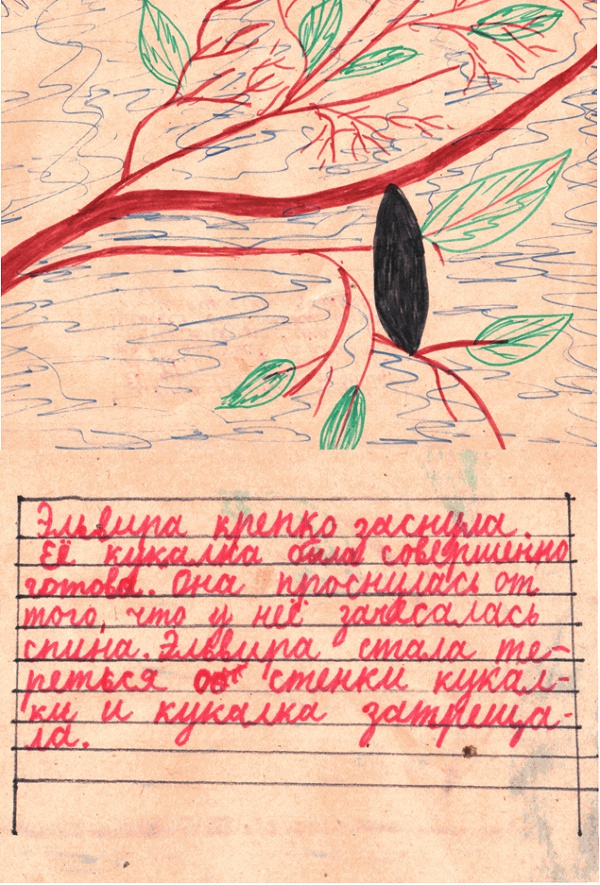 Эльвира крепко заснула.
Её кукалка была совершенно
готова. Она проснулась от
того, что у неё зачесалась
спина. Эльвира стала те-
реться об стенки кукал-
ки и кукалка затреща-
ла.